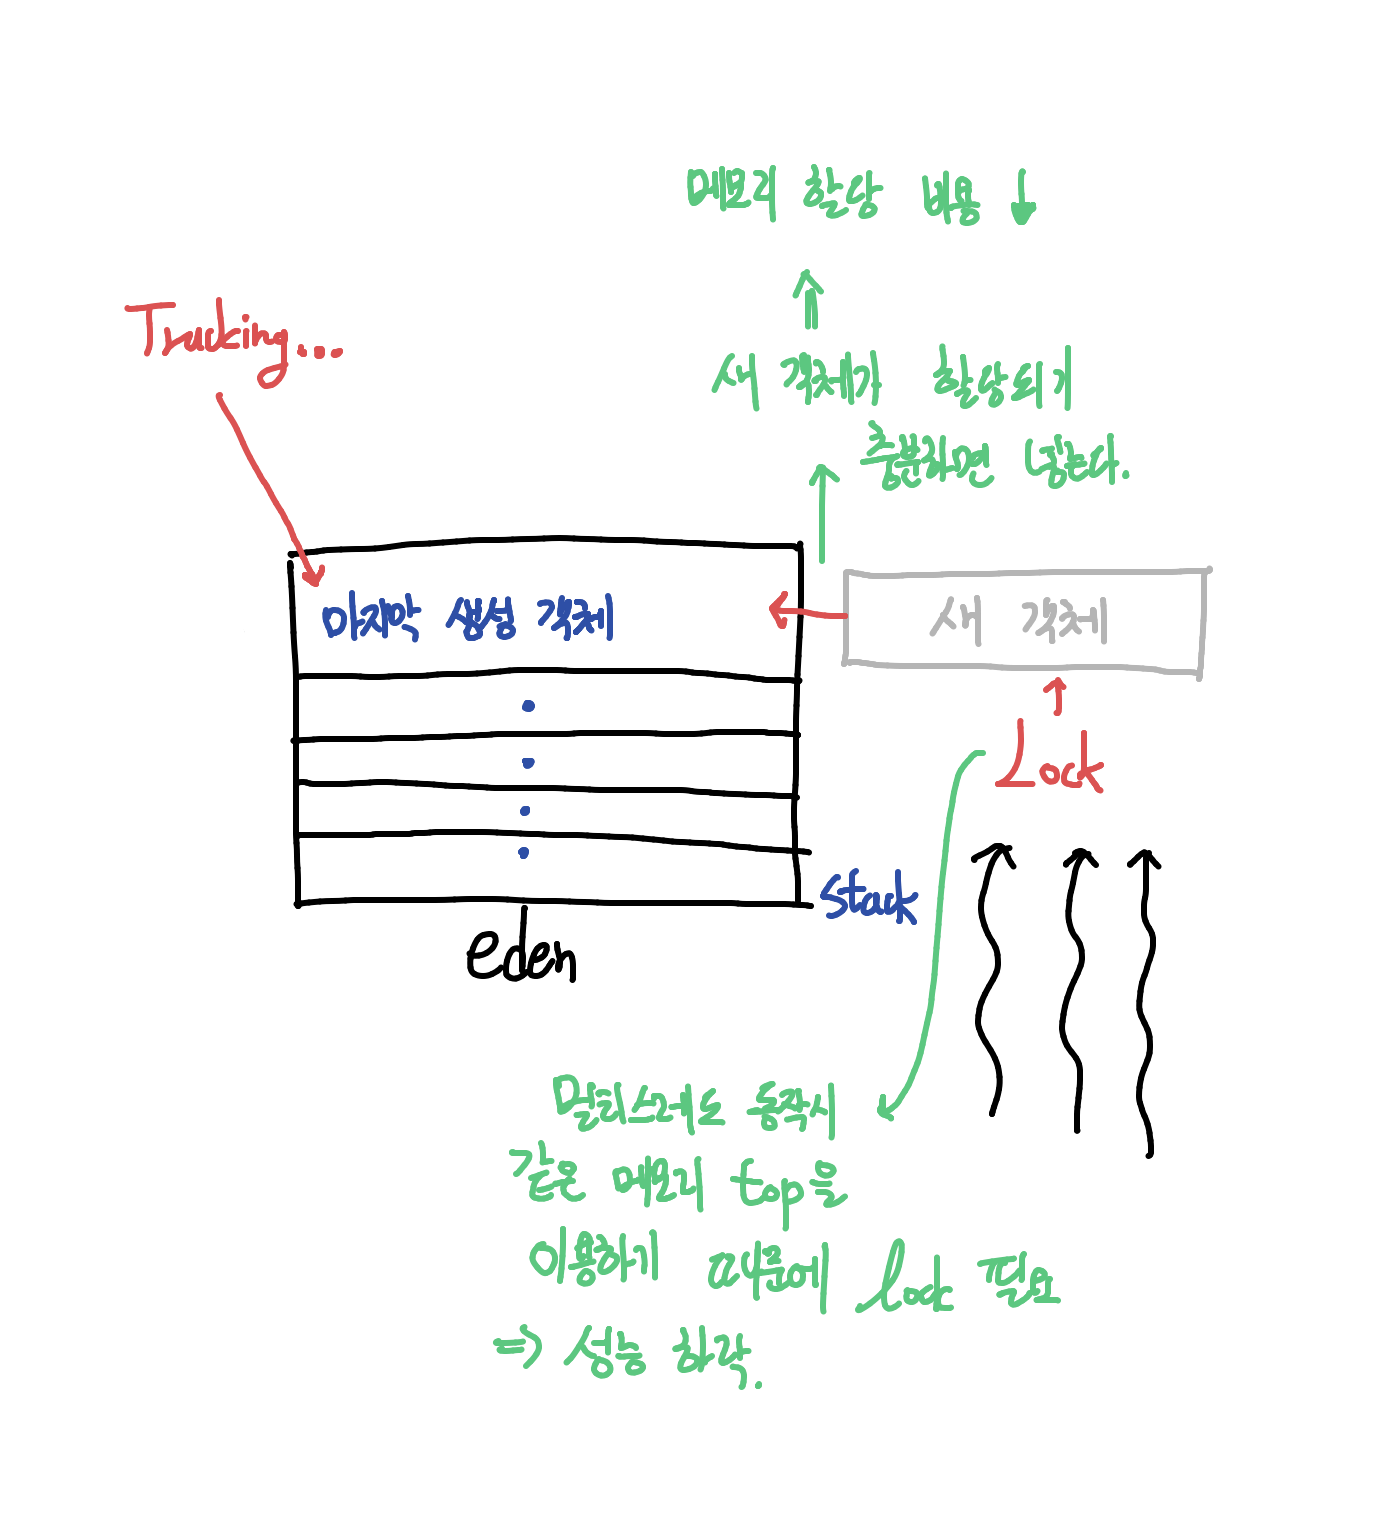 메모리 할당 비용 ↓
Tracking...
새 객체가 할당되기
충분하면 넣는다.
마지막 생성 객체
새 객체
Lock
stack
eden
멀티스레드 동작시
같은 메모리 top을
이용하기 때문에 lock 필요
=> 성능 하락.